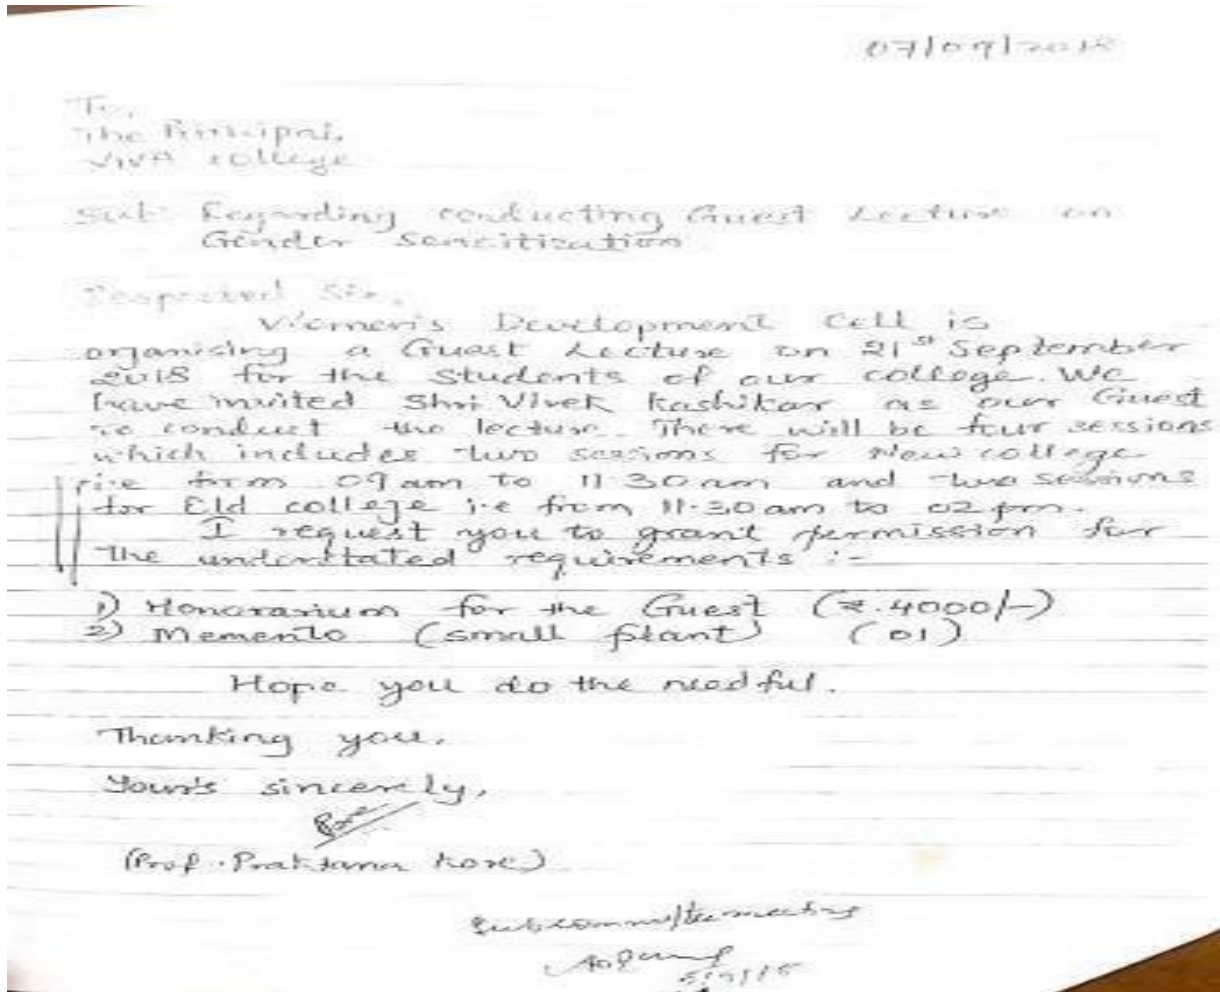 07/09/2018
To,
The Principal,
VIVA College
Sub: Regarding conducting Guest Lecture on
Gender Sensitization
Respected Sir,
Women's Development Cell is
organising a Guest Lecture on 21st September
2018 for the students of our college. We
have invited Shri Vivek Kashikar as our Guest
to conduct the lecture. There will be four sessions
which includes two sessions for New college
i.e from 09 am to 11.30 am and two sessions
for Old college i.e from 11.30 am to 02 pm.
I request you to grant permission for
the understated requirements :-
1) Honorarium for the Guest (₹.4000/-)
2) Memento (small plant) (01)
Hope you do the needful.
Thanking you,
Your's sincerely,
(Prof. Praktana Kore)
Subcommittee meeting